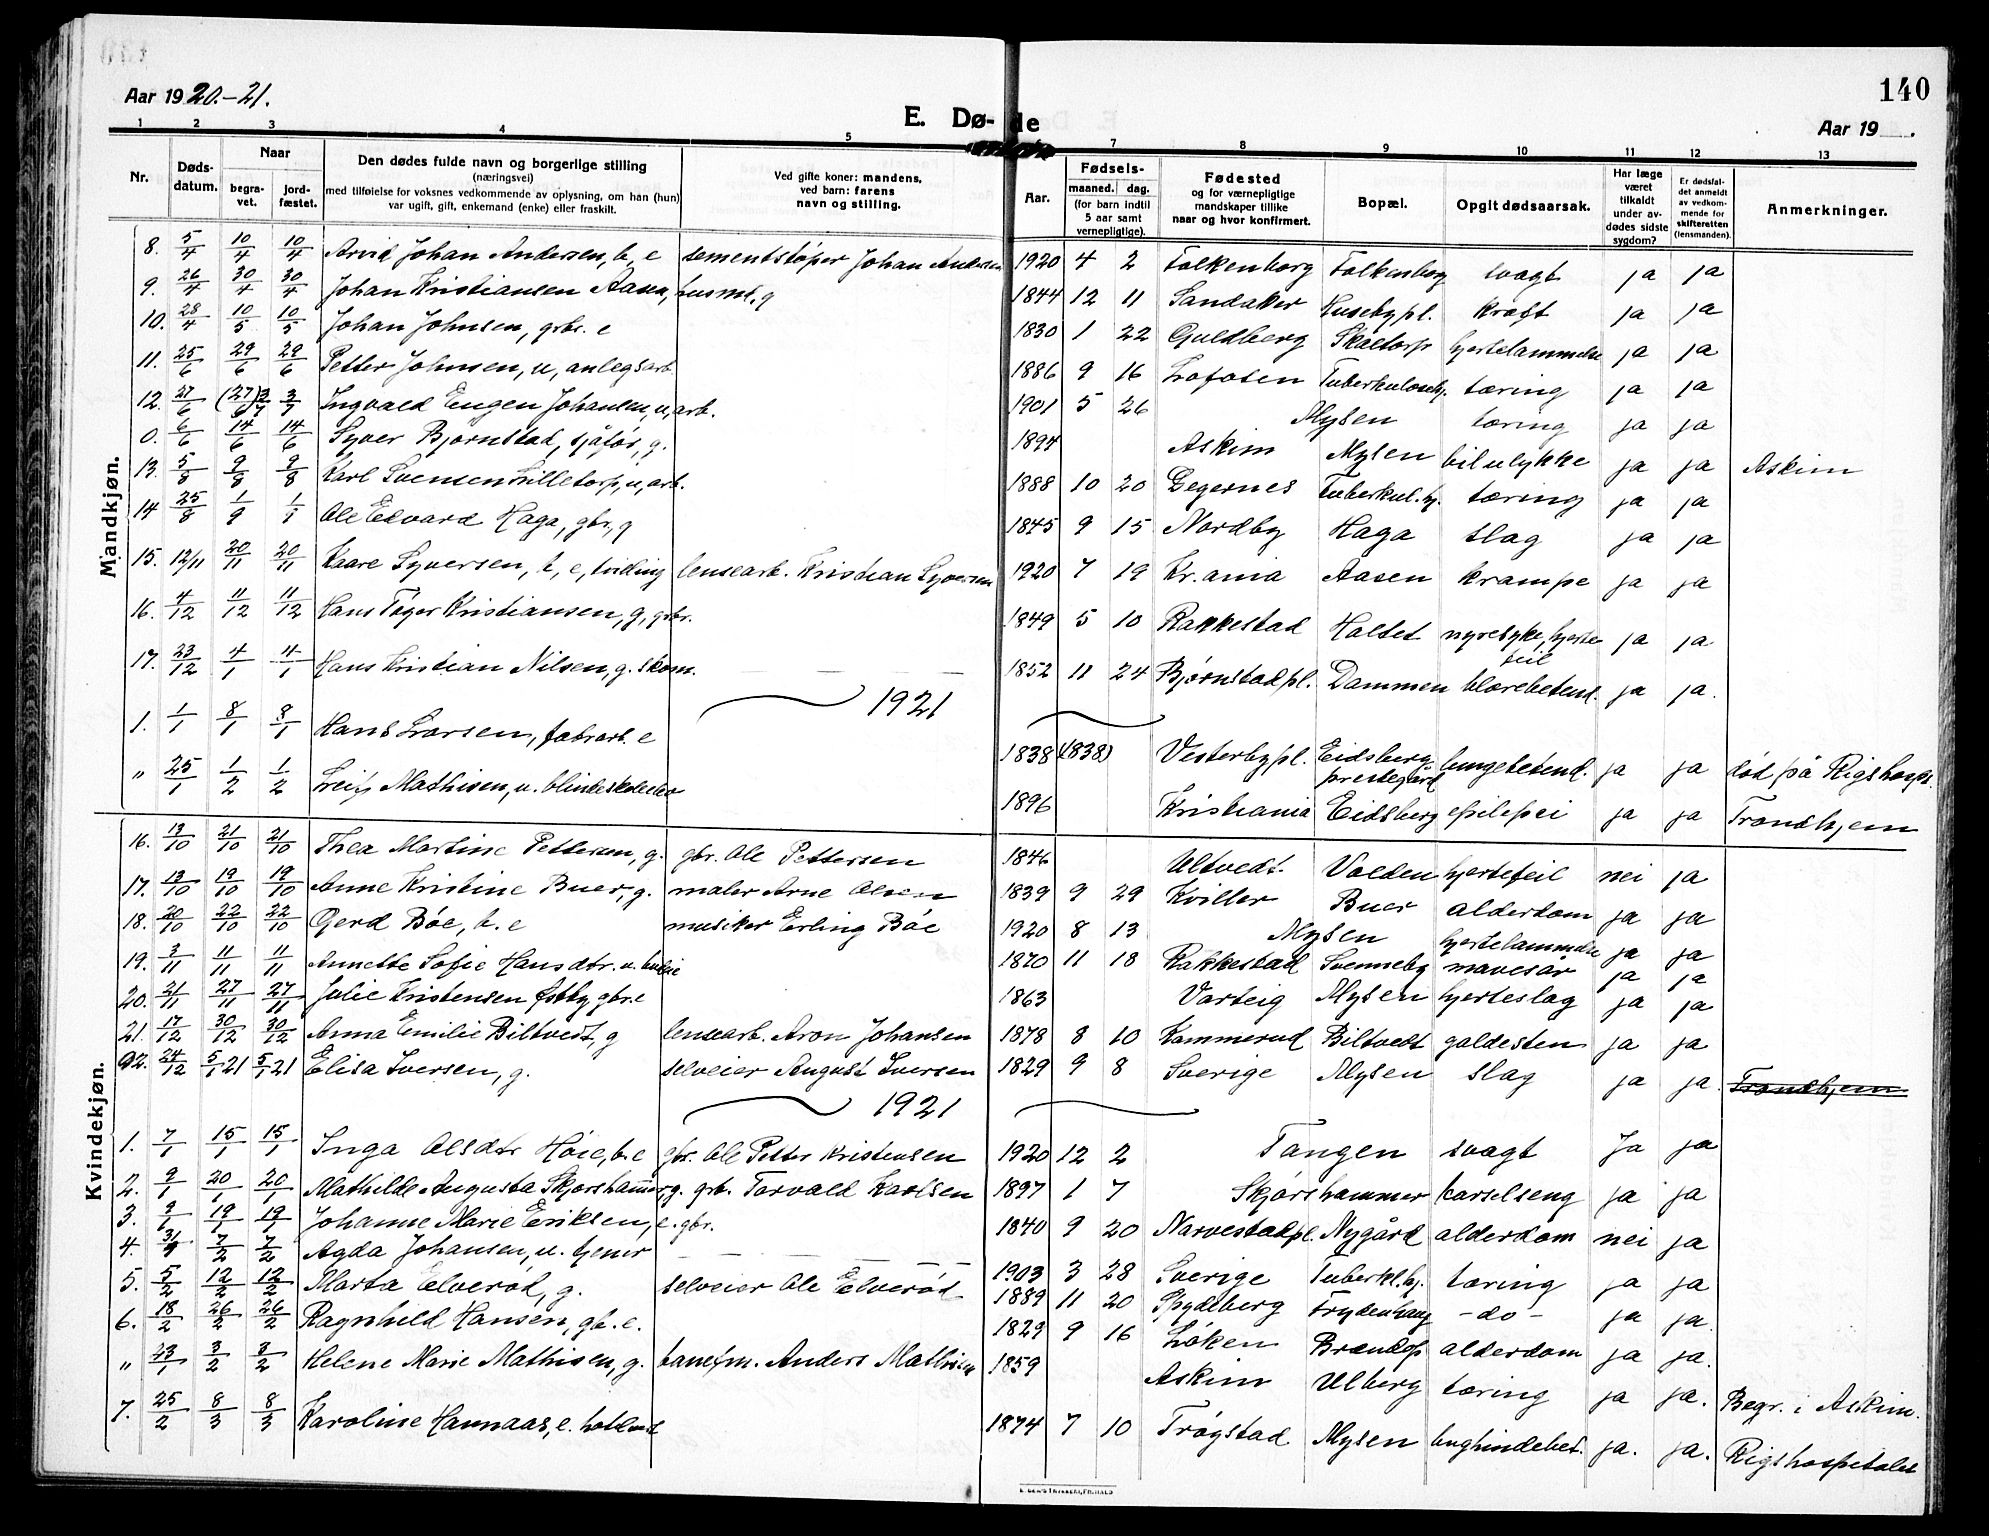 140
Aar 1920.-21.
E. Dø-de
Aar 19   .
1 2 3 4 5 7 8 9 10 11 12 13
Nr.
Døds-datum.
Naar
begra-vet.
jord-fæstet.
Den dødes fulde navn og borgerlige stilling
(næringsvei)
med tilføielse for voksnes vedkommende av oplysning, om han (hun)
var ugift, gift, enkemand (enke) eller fraskilt.
Ved gifte koner: mandens,
ved barn: farens
navn og stilling.
Aar.
Fødsels-
maaned. dag.
(for barn indtil
5 aar samt
vernepligtige).
Fødested
og for værnepligtige
mandskaper tillike
naar og hvor konfirmert.
Bopæl.
Opgit dødsaarsak.
Har læge
været
tilkaldt
under av-
dødes sidste
sygdom?
Er dødsfal-
det anmeldt
av vedkom-
mende for
skifteretten
(lensmanden).
Anmerkninger.
Mandkjøn.
8. 5/4 10/4 10/4 Arvid Johan Andersen, b, e sementstøper Johan Andersen 1920 4 2 Folkenborg Folkenborg svagt ja ja
9. 26/4 30/4 30/4 Johan Kristiansen Aasen, husmt, g 1844 12 11 Sandaker Husebypl. kræft ja ja
10. 28/4 10/5 10/5 Johan Johnsen, grbr. e 1830 1 22 Guldberg Skaltorp hjertelammelse ja ja
11. 25/6 29/6 29/6 Petter Johnsen, u, anlegsarb. 1886 9 16 Lofoten Tuberkulosehj. tæring ja ja
12. 27/6 (27/6) 3/7 3/7 Ingvald Eugen Johansen, u, arb. 1901 5 26 Mysen tæring ja ja
0. 6/6 14/6 14/6 Syver Bjørnstad, sjåfør, g. 1894 Askim Mysen bilulykke ja ja Askim
13. 5/8 9/8 9/8 Karl Svensen Lilletorp, u, arb. 1888 10 20 Gegernes Tuberkul.hj. tæring ja ja
14 25/8 1/9 1/1 Ole Edvard Haga, gbr, g 1845 9 15 Nordby Haga slag ja ja
15. 12/11 20/11 20/11 Kaare Syversen, b, e, tvilling lensearb. Kristian Syversen 1920 7 19 Kr.ania Aasen krampe ja ja
16. 4/12 11/12 11/12 Hans Tøger Kristiansen, g, grbr. 1849 5 10 Rakkestad Haltet nyresyke, hjertefeil ja ja
17. 23/12 4/1 4/1 Hans Kristian Nilsen, g. skom. 1852 11 24 Bjørnstadpl. Dammen blærebetend. ja ja.
1921
1. 1/1 8/1 8/1 Hans Larsen, fabrarb. e 1838 (1838) Vesterbypl. Eidsberg prestegård lungebetend. ja ja død på Rigshosps
" 25/1 1/2 1/2 Leif Mathisen, u. blindeskoleelev 1896 Kristiania Eidsberg epilepsi ja ja Trondhjem
Kvindekjøn.
16. 13/10 21/10 21/10 Thea Martine Pettersen, g. gbr. Ole Pettersen 1846 Ultvedt. Volden hjertefeil nei ja
17. 13/10 19/10 19/10 Anne Kristine Buer, g. maler Arne Olsen 1839 9 29 Kviller Buer alderdom ja ja
18. 20/10 22/10 22/10 Gerd Bøe, b. e musiker Erling Bøe 1920 8 13 Mysen hjertelammelse ja ja
19. 3/11 11/11 11/11 Annette Sofie Hansdtr. u. 1870 11 18 Rakkestad Svenneby mavesår ja ja
20. 21/11 27/11 27/11 Julie Kristensen Østby gbr.e 1863 Varteig Mysen hjerteslag ja ja
21. 17/12 30/12 30/12 Anna Emilie Biltvedt, g lensearb. Aron Johansen 1878 8 10 Kammerud Biltvedt galdesten ja ja
22. 24/12 5/1 21 5/1 21 Elisa Iversen, g. selveier August Iversen 1829 9 8 Sverige Mysen slag ja ja. Trondhjem
1921
1. 7/1 15/1 15/1 Inga Olsdtr Høie, b. e gbr. Ole Petter Kristensen 1920 12 2 Tangen svagt Ja ja
2. 9/1 20/1 20/1 Mathilde Augusta Skjørshammer, g. grb. Torvald Karlsen 1897 1 7 Skjørshammer barselseng ja ja
3. 9/1 19/1 19/1 Johanne Marie Eriksen, e. gbr. 1840 9 20 Narvestadpl. Nygård alderdom nei ja
4. 31/1 7/2 7/2 Agda Johansen, u. tjener 1903 3 28 Sverige Tuberkl.hj. tæring ja ja
5. 5/2 12/2 12/2 Marta Elverød, g. selveier Ole Elverød 1889 11 20 Spydeberg Frydenhaug - do - ja ja.
6. 18/2 26/2 26/2 Ragnhild Hansen, gb. e. 1829 9 16 Løken Brandsp alderdom ja ja.
" 23/1 3/2 3/2 Helene Marie Mathisen, g. banefm. Anders Mathisen 1859 Askim Ulberg tæring ja ja. Begr. i Askim.
7. 25/2 8/3 8/3 Karoline Hannaas, e. 1874 7 10 Trøgstad Mysen bughindebet. ja. ja. Rigshospitalet